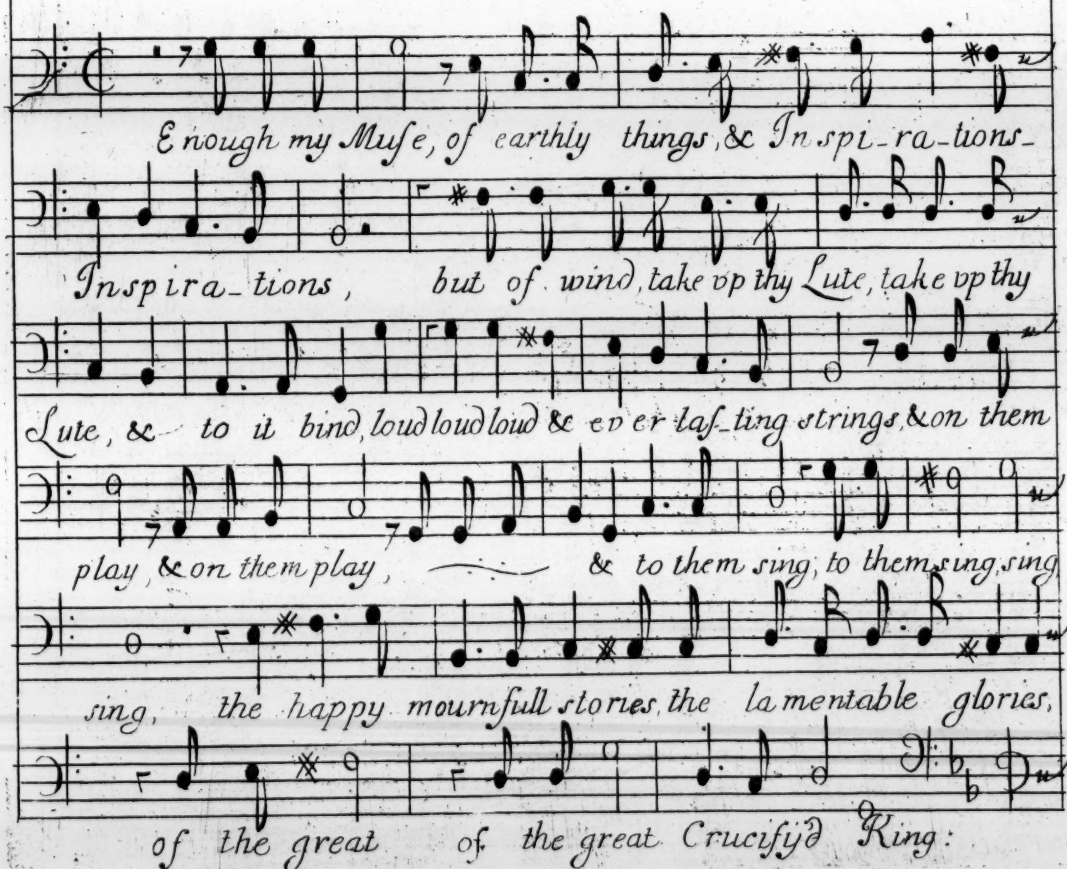 Enough my Muſe, of earthly things, & Inspi-ra-tions-
Inspira-tions, but of wind, take vp thy Lute, take vp thy
Lute, & to it bind, loud loud loud & ever laſ-ting strings, & on them
play, & on them play, & to them sing, to them sing, sing
sing, the happy mournfull stories, the lamentable glories,
of the great of the great Crucify'd King: